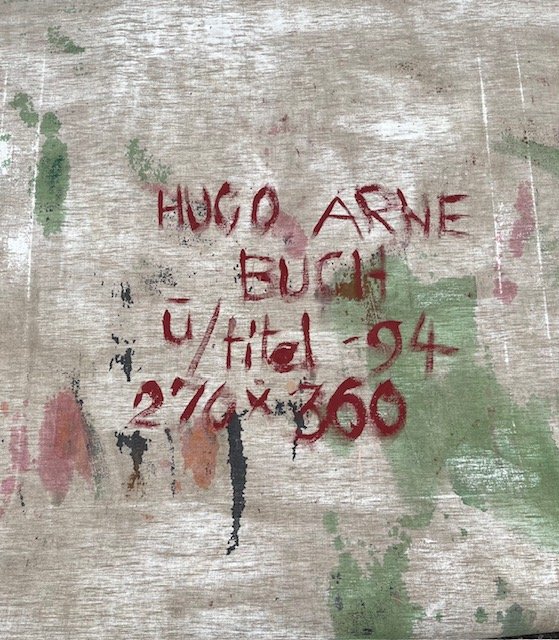 HUGO ARNE
BUCH
ū/titel -94
270 x 360